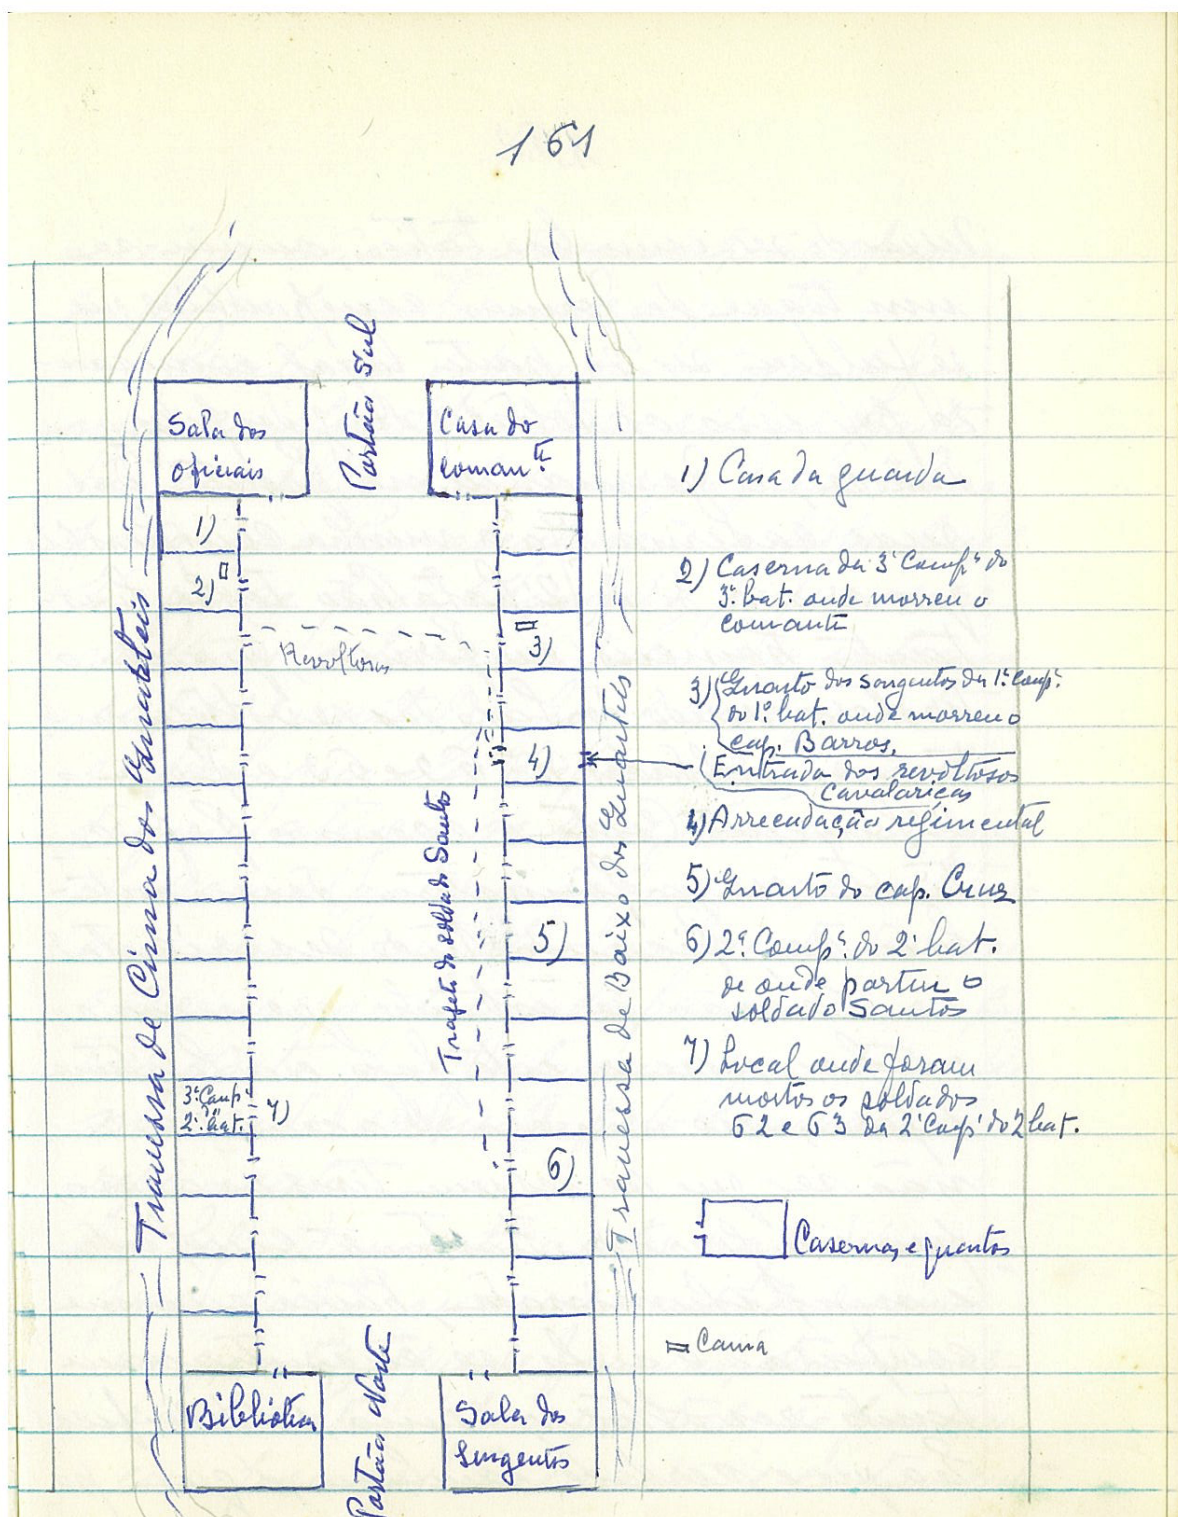 161
Portão Sul
Sala dos
oficiais
Casa do
coman.te
1)
2)
Revoltosos
3)
4)
5)
6)
3ª Comp.ª
2º bat.
7)
Trajeto do soldado Santos
Travessa de Cima dos Quarteis
Travessa de Baixo dos Quarteis
Biblioteca
Portão Norte
Sala dos
Sargentos
1) Casa da guarda
2) Caserna da 3ª Comp.ª do
3º bat. onde morreu o
comante
3) Quarto dos sargentos da 1ª Comp.ª
do 1º bat. onde morreu o
cap. Barros.
Entrada dos revoltosos
Cavalariças
4) Arrecadação regimental
5) Quarto do cap. Cruz
6) 2ª Comp.ª do 2º bat.
de onde partiu o
soldado Santos
7) Local onde foram
mortos os soldados
62 e 63 da 2ª Comp.ª do 2º bat.
Casernas e quartos
Cama